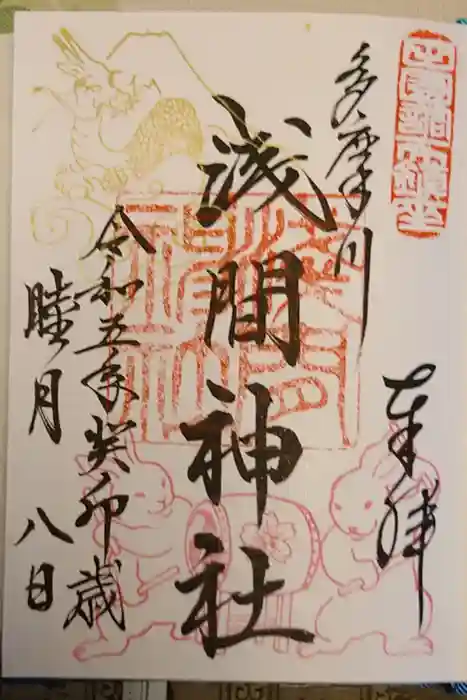 奉拝
多摩川
浅間神社
令和五年癸卯歳
睦月
八日